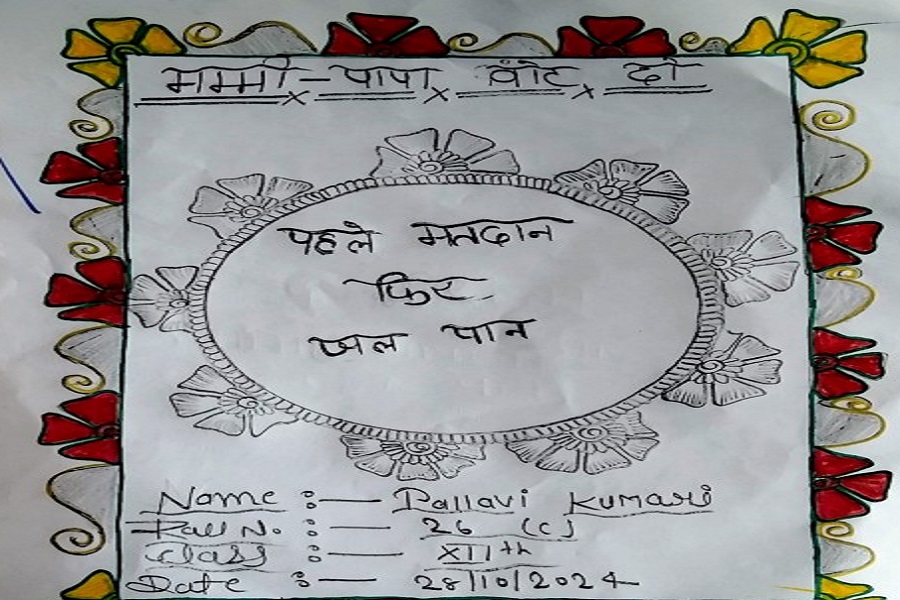 मम्मी - पापा वोट दो
पहले मतदान
फिर
जल पान
Name :- Pallavi Kumari
Roll No. :- 26 (C)
Class :- XIIth
Date :- 28/10/2024